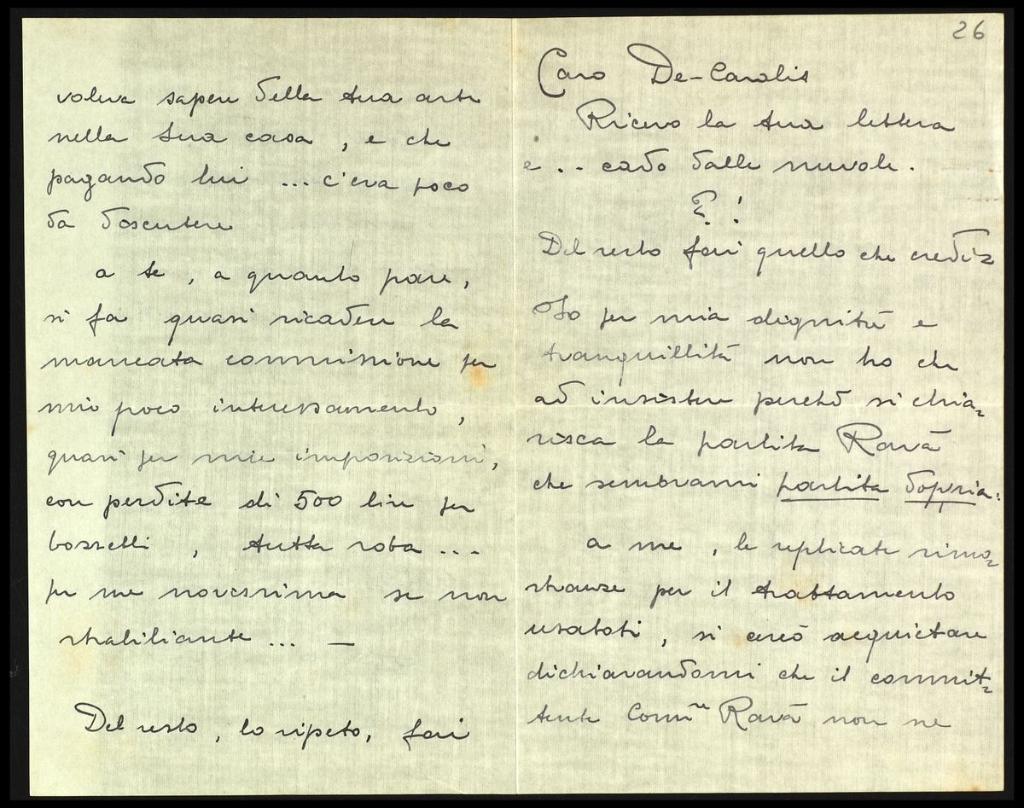 26
Caro De-Carolis
Ricevo la tua lettera
e .. cado dalle nuvole.
E!
Del resto fai quello che credi=
Io per mia dignità e
tranquillità non ho che
ad insistere perchè si chia=
risca la partita Ravà
che sembrami partita doppia.
a me, le replicate rimo=
stranze per il trattamento
usatoti, si cercò acquietare
dichiarandomi che il commit=
tente Comm.re Ravà non ne
voleva sapere della tua arte
nella sua casa, e che
pagando lui ... c'era poco
da discutere
a te, a quanto pare,
si fa quasi ricadere la
mancata commissione per
mio poco interessamento,
quasi per mie imposizioni,
con perdite di 500 lire per
bozzetti, tutta roba ...
per me novissima se non
strabiliante ... —
Del resto, lo ripeto, fai